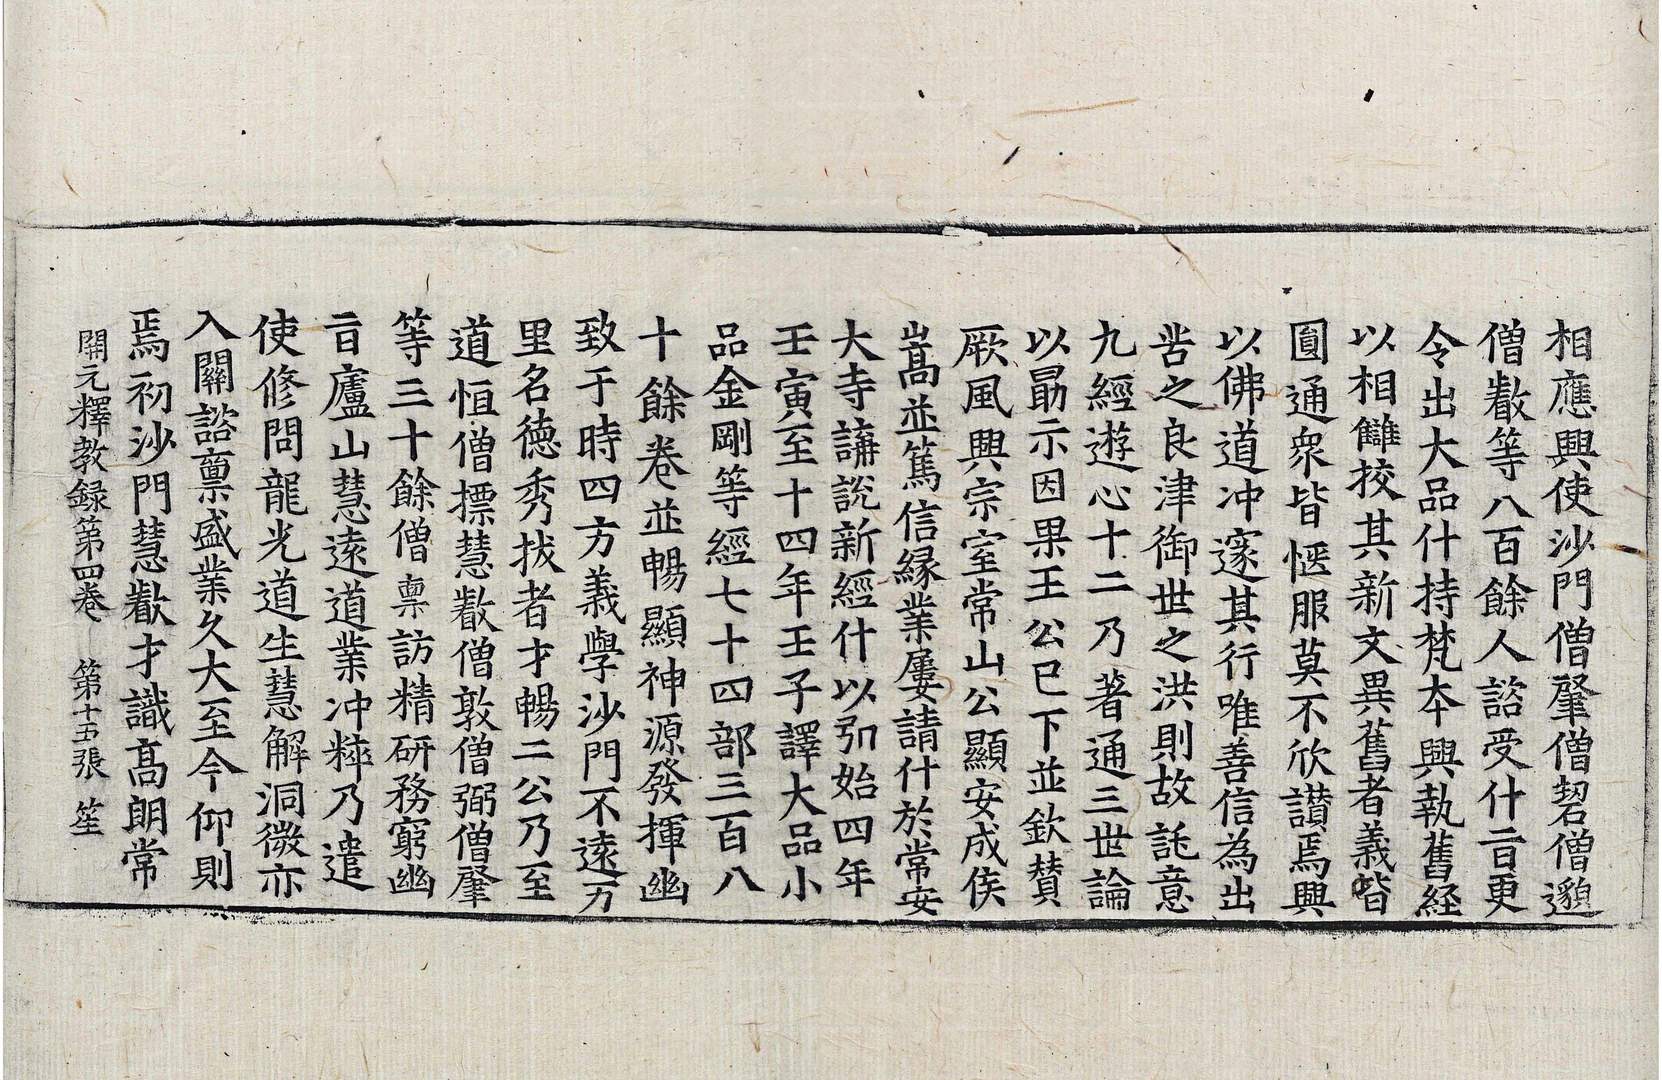 相應興使沙門僧肇僧䂮僧邈
僧叡等八百餘人諮受什㫖更
令出大品什持梵本興執舊經
以相讎挍其新文異舊者義皆
圓通衆皆愜服莫不欣讃焉興
以佛道冲邃其行唯善信為出
苦之良津御世之洪則故託意
九經遊心十二乃著通三世論
以勗示因果王公已下並欽賛
厥風興宗室常山公顯安成侯
嵩並篤信縁業屢請什於常安
大寺講說新經什以弘始四年
壬寅至十四年壬子譯大品小
品金剛等經七十四部三百八
十餘卷並暢顯神源發揮幽
致于時四方義學沙門不遠万
里名德秀拔者才暢二公乃至
道恒僧摽慧叡僧敦僧弼僧肇
等三十餘僧禀訪精研務窮幽
㫖廬山慧遠道業冲粹乃遣
使修問龍光道生慧解洞微亦
入關諮禀盛業久大至今仰則
焉初沙門慧叡才識髙朗常
開元釋教録第四卷　第十五張　笙